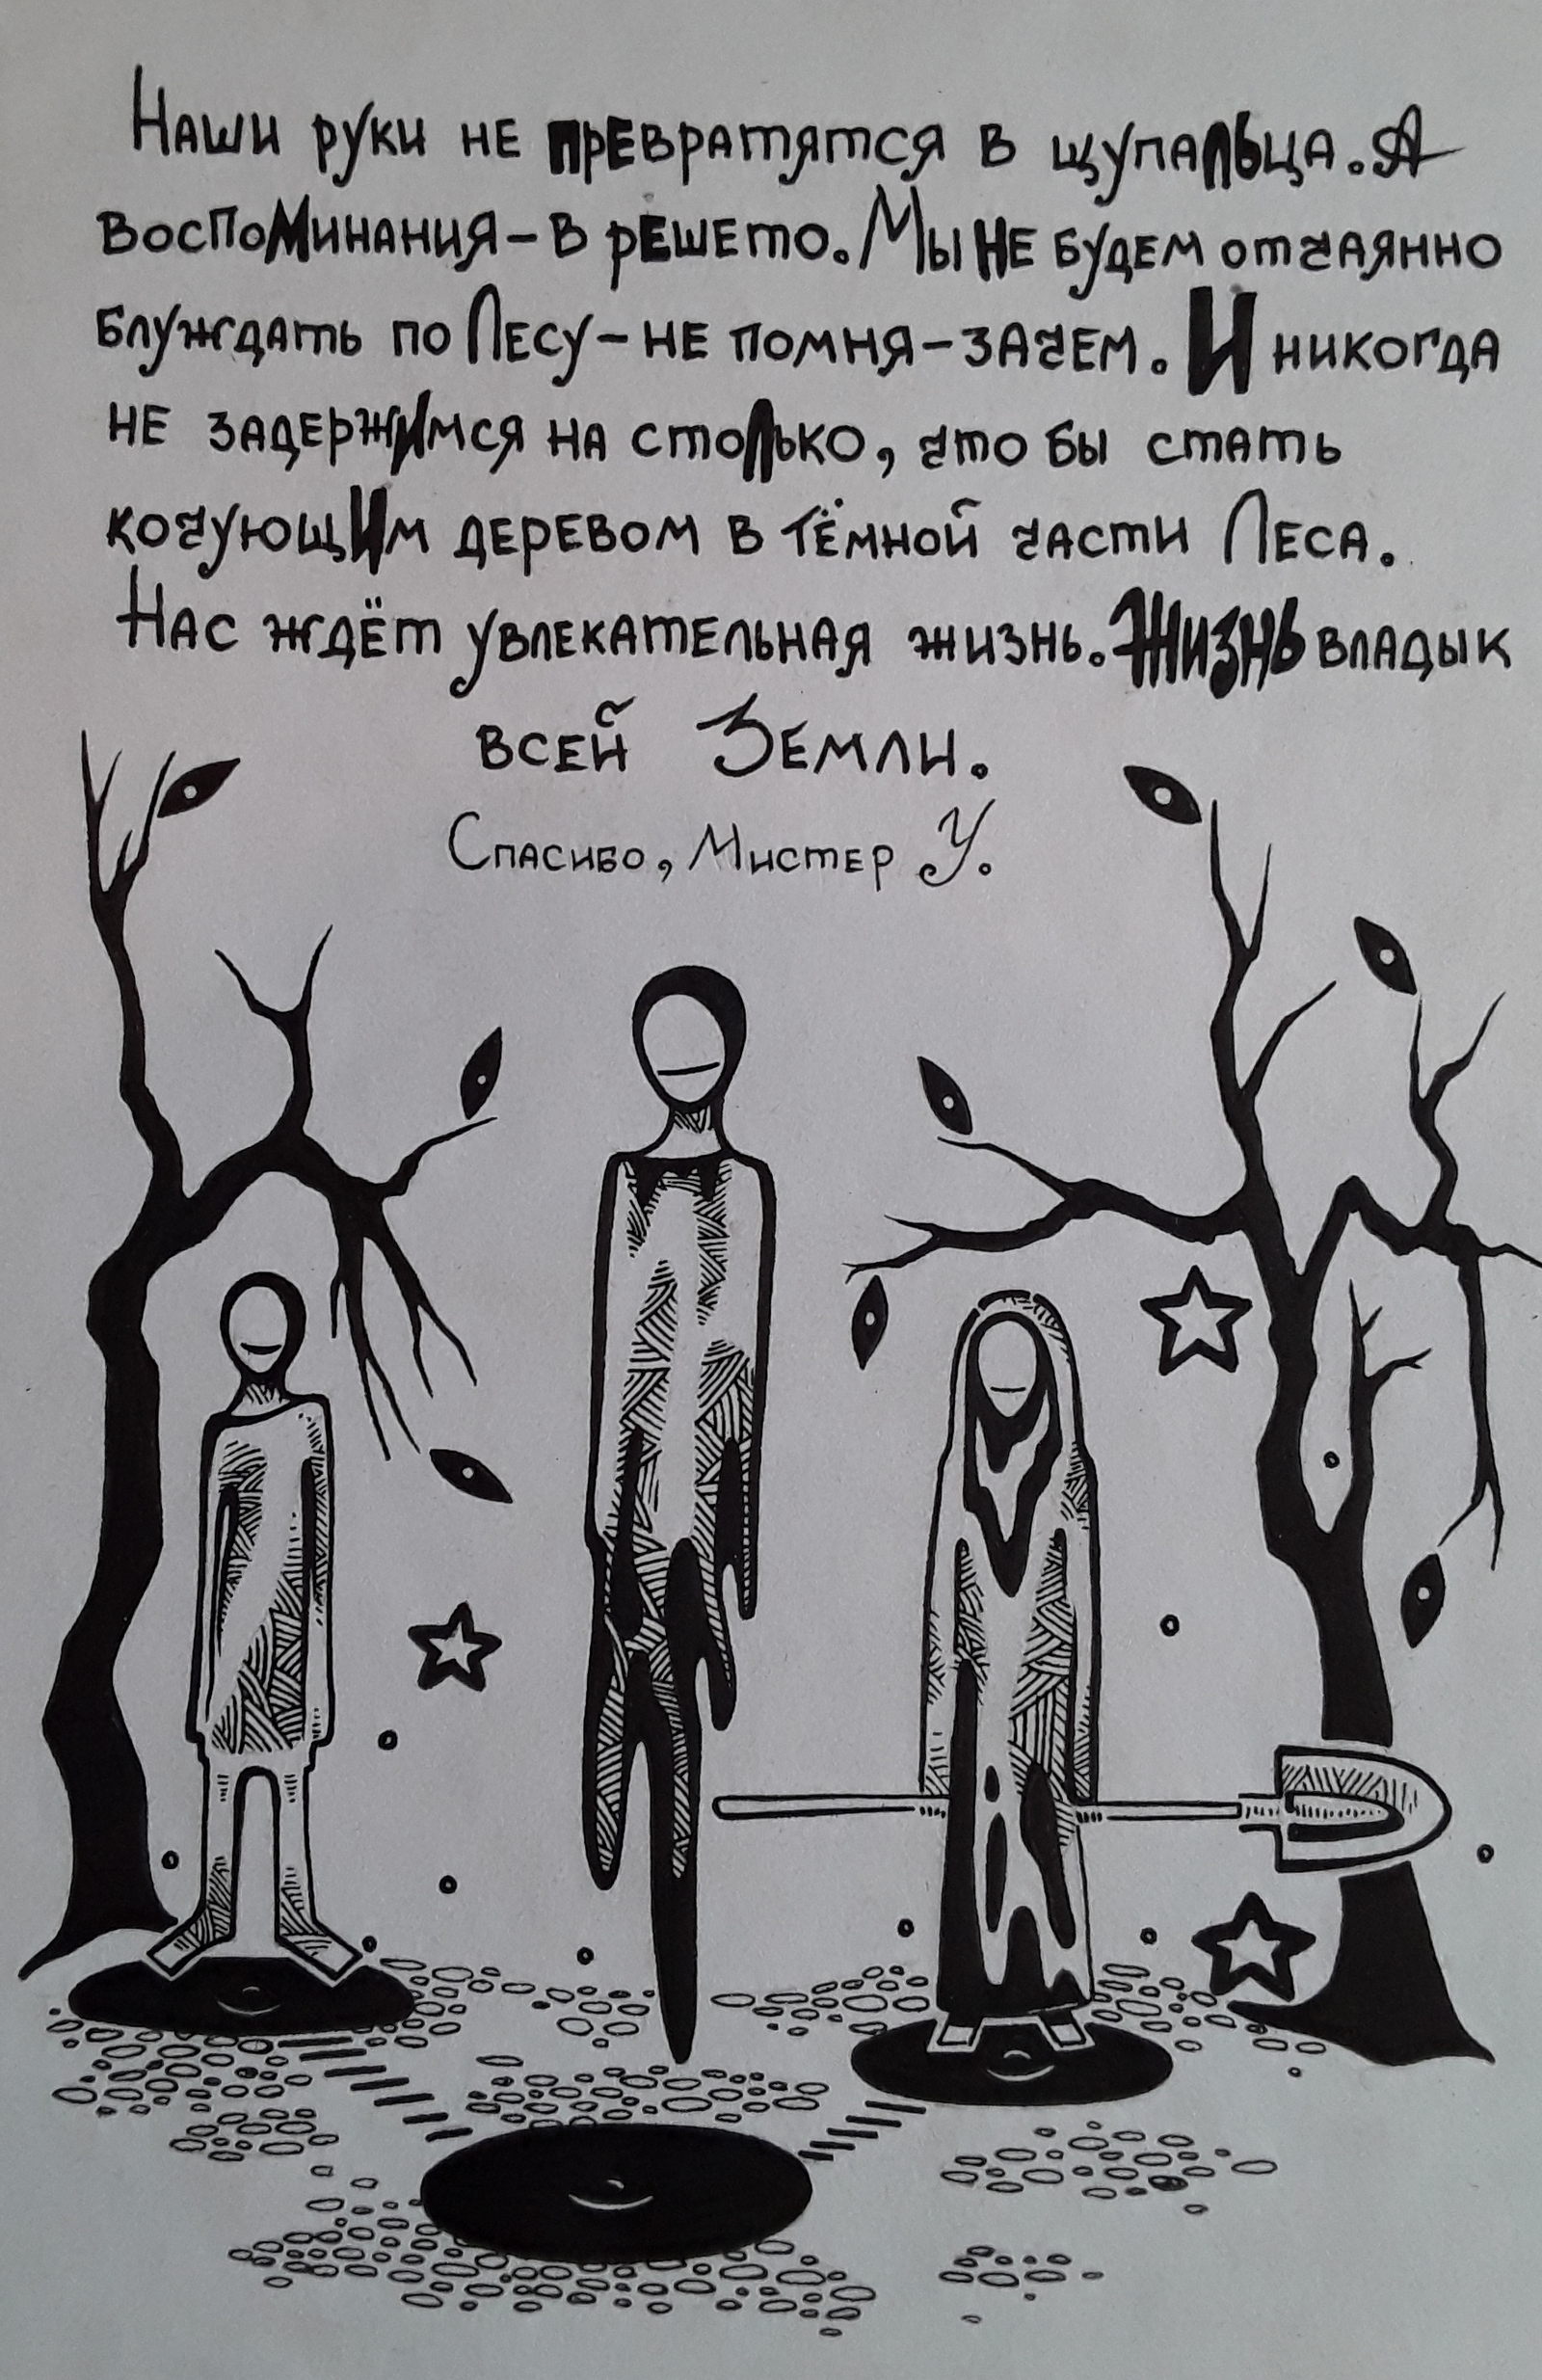 Наши руки не превратятся в щупальца. А
воспоминания – в решето. Мы не будем отчаянно
блуждать по Лесу – не помня – зачем. И никогда
не задержимся на столько, что бы стать
кочующим деревом в тёмной части Леса.
Нас ждёт увлекательная жизнь. Жизнь владык
всей Земли.
Спасибо, Мистер У.